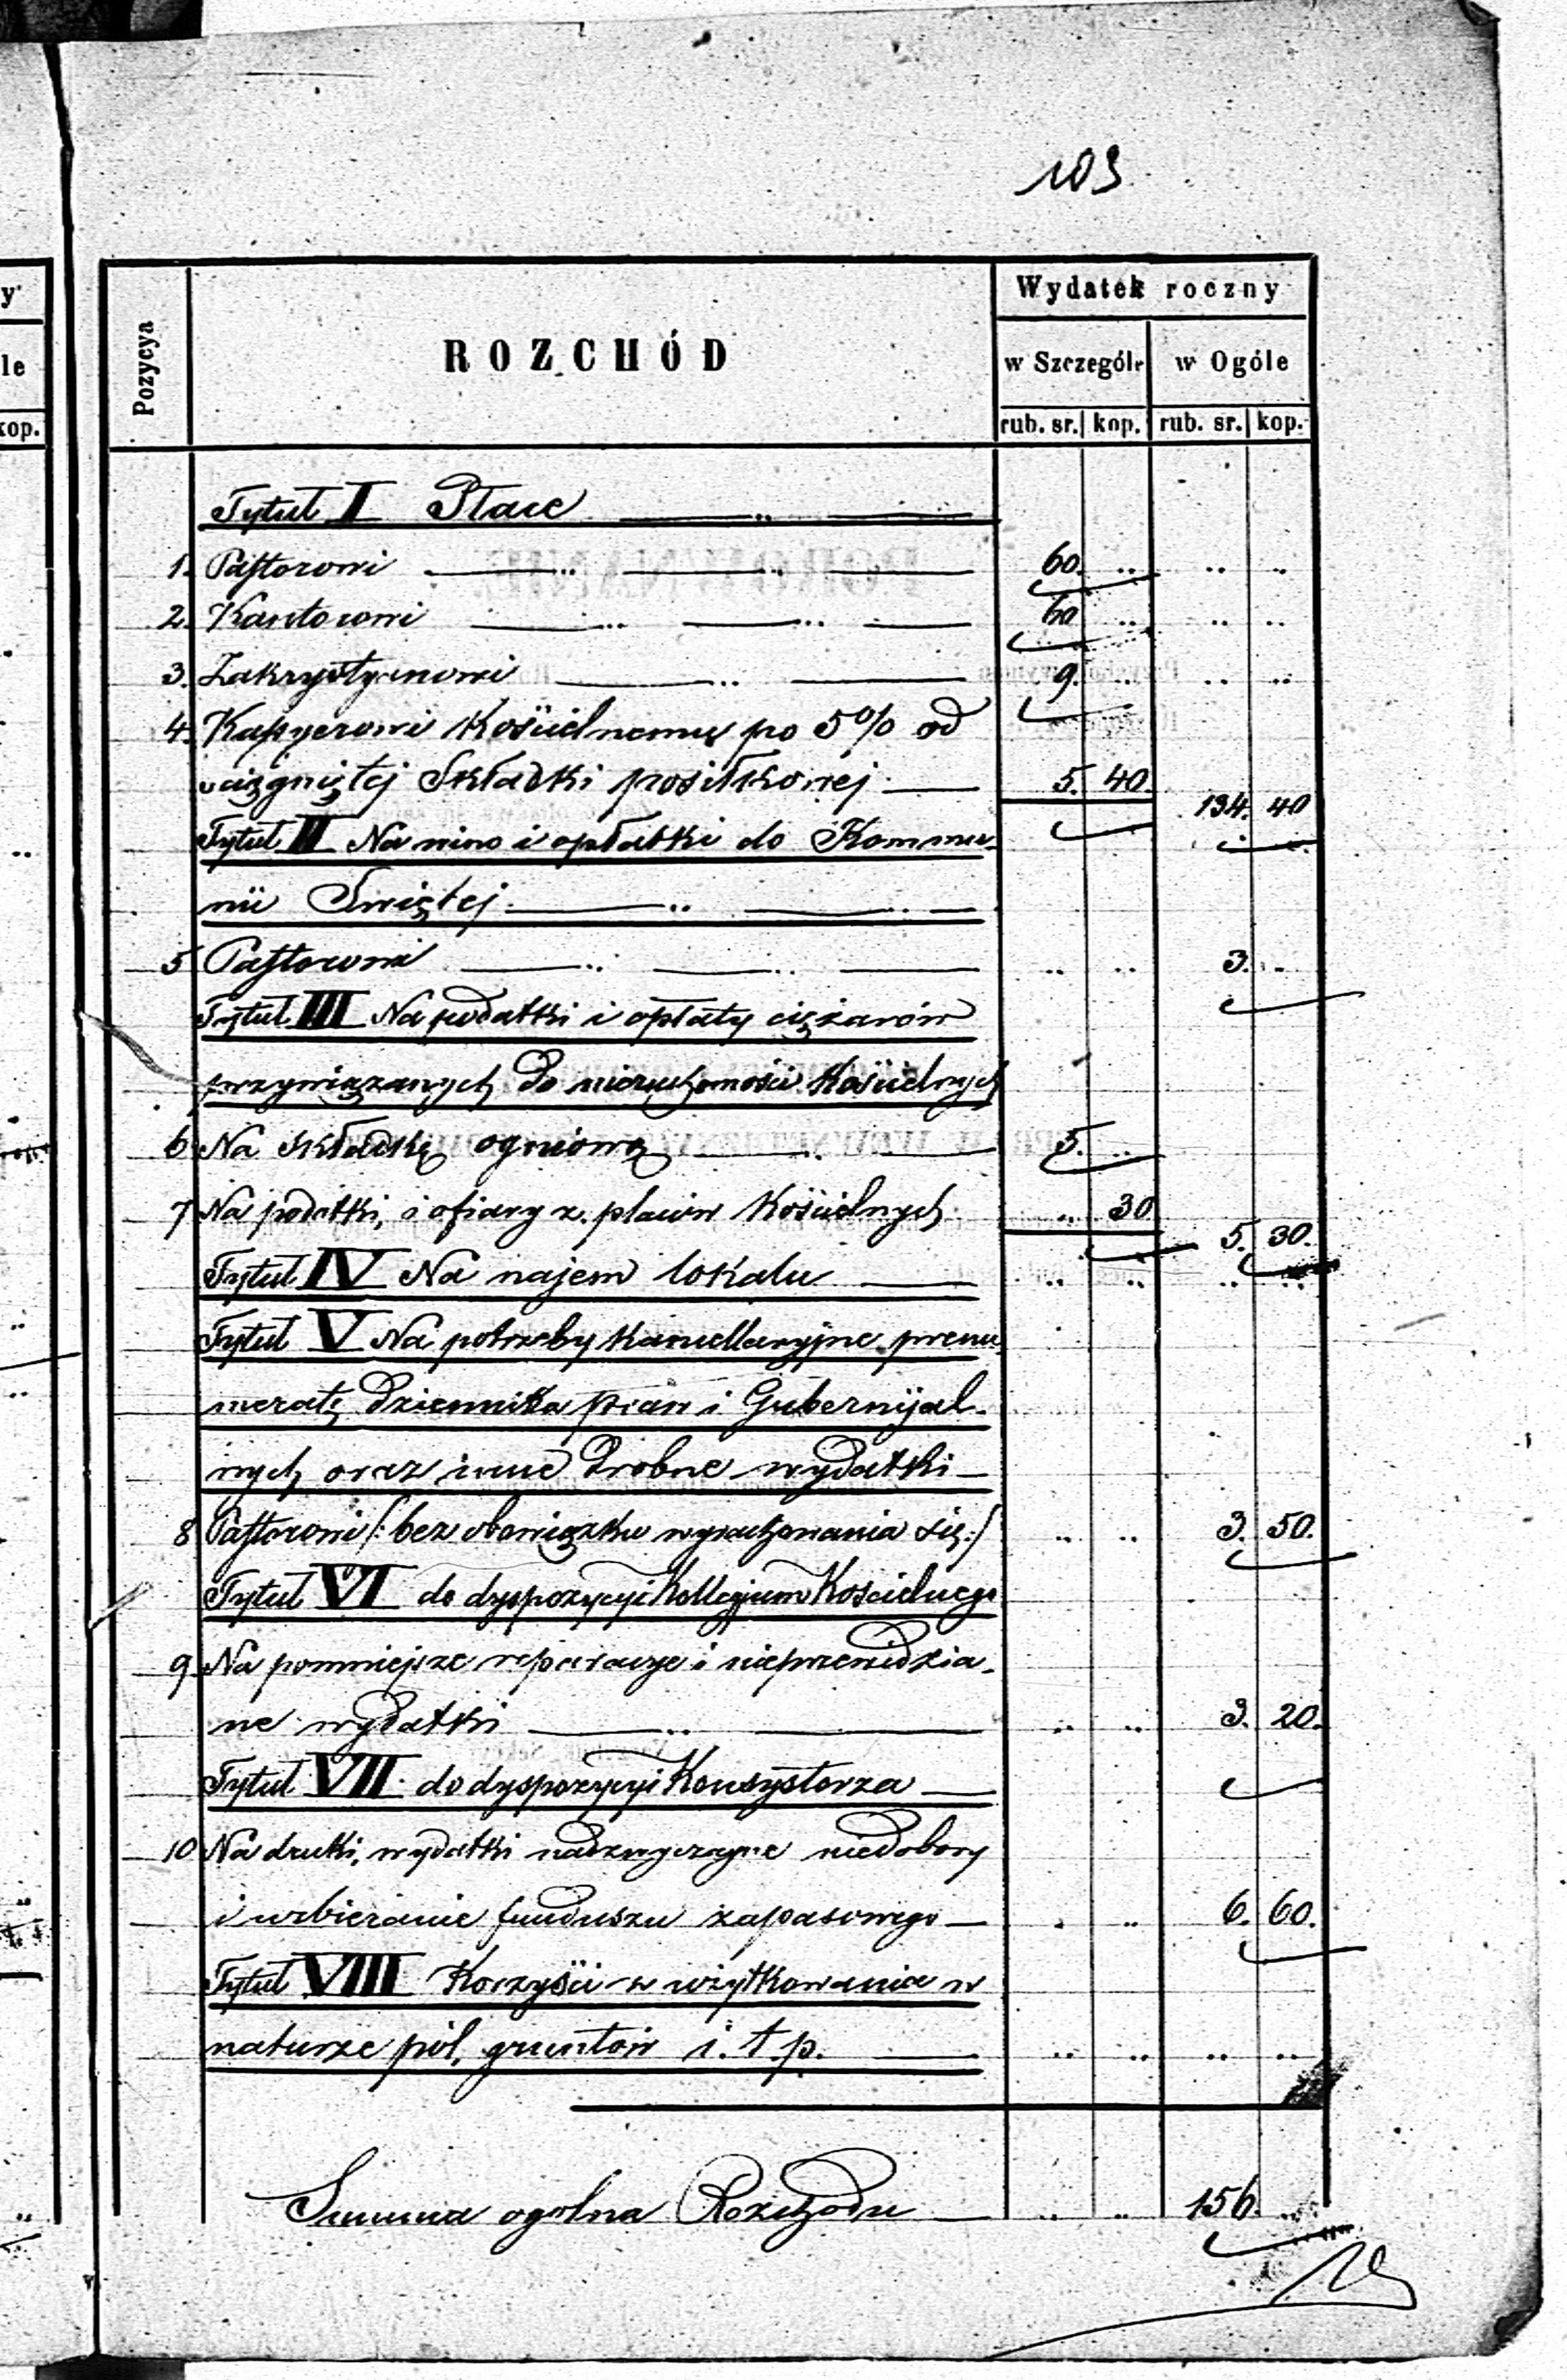 103
Pozycya
ROZCHÓD
Wydatek roczny
w Szczególe
w Ogóle
rub. sr. kop. rub. sr. kop.
Tytuł I Place
1. Pastorowi 60. .. .. ..
2. Kantorowi 60 .. .. ..
3. Zakrystyanowi 9. .. .. ..
4. Kassyerowi Kościelnemu po 5% od
ściągniętej Składki posiłkowej 5. 40 134. 40
Tytuł II Na wino i opłatki do Kommu-
nii Świętej
5 Pastorowi .. .. 3. ..
Tytuł III Na podatki i opłaty ciężarów
przywiązanych do nieruchomości Kościelnych
6 Na składkę ogniową 5. ..
7 Na podatki, i ofiary z placów Kościelnych .. 30 5. 30.
Tytuł IV Na najem lokalu .. .. .. ..
Tytuł V Na potrzeby kancellaryjne prenu-
meratę Dziennika praw i Gubernijal-
nych oraz inne drobne wydatki
8 Pastorowi /: bez obowiązku wyrachowania się :/ .. .. 3. 50.
Tytuł VI do dyspozycyi Kollegium Kościelnego
9. Na pomniejsze reparacye i nieprzewidzia-
ne wydatki .. .. 3. 20.
Tytuł VII do dyspozycyi Konsystorza
10 Na druki, wydatki nadzwyczajne niedobory
i uzbieranie funduszu zapasowego . .. 6. 60.
Tytuł VIII Korzyści z użytkowania w
naturze pól, gruntów i. t. p. .. .. .. ..
Summa ogólna Rozchodu .. .. 156. ..
y
le
kop.